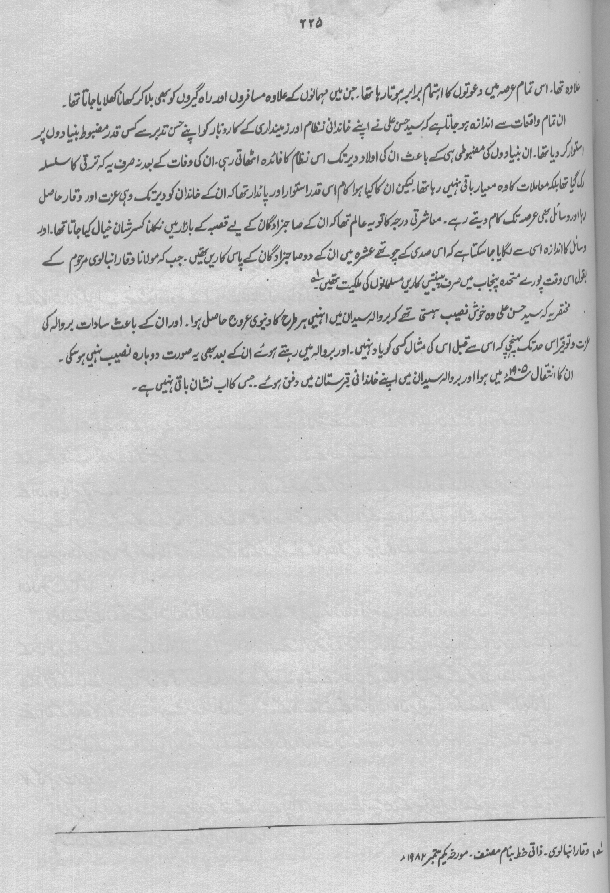 ۲۲۵
علاوہ تھا۔ اس تمام عرصہ میں دعوتوں کا اہتمام برابر ہوتا رہا تھا۔ جن میں مہمانوں کے علاوہ مسافروں اور راہ گیروں کو بھی بلا کر کھانا کھلایا جاتا تھا۔
ان تمام واقعات سے اندازہ ہو جاتا ہے کہ سید حسن علی نے اپنے خاندانی نظام اور زمینداری کے کاروبار کو اپنے حسن تدبر سے کس قدر مضبوط بنیادوں پر
استوار کر دیا تھا۔ ان بنیادوں کی مضبوطی ہی کے باعث ان کی اولاد دیر تک اس نظام کا فائدہ اٹھاتی رہی۔ ان کی وفات کے بعد نہ صرف یہ کہ ترقی کا سلسلہ
رک گیا تھا بلکہ معاملات کا وہ معیار باقی نہیں رہا تھا۔ لیکن ان کا کیا ہوا کام اس قدر استوار اور پائدار تھا کہ ان کے خاندان کو دیر تک وہی عزت اور وقار حاصل
رہا اور وسائل بھی عرصہ تک کام دیتے رہے۔ معاشرتی درجہ کا تو یہ عالم تھا کہ ان کے صاحبزادگان کے لیے قصبہ کے بازار میں نکلنا کسر شان خیال کیا جاتا تھا۔ اور
وسائل کا اندازہ اسی سے لگایا جا سکتا ہے کہ اس صدی کے چوتھے عشرہ میں ان کے دو صاحبزادگان کے پاس کاریں تھیں۔ جب کہ مولانا وقار انبالوی مرحوم کے
بقول اس وقت پورے متحدہ پنجاب میں صرف پینتیس کاریں مسلمانوں کی ملکیت تھیں۔ لہ
مختصر یہ کہ سید حسن علی وہ خوش نصیب ہستی تھے کہ بروالہ سیدان میں انہیں ہر طرح کا دنیوی عروج حاصل ہوا۔ اور ان کے باعث سادات بروالہ کی
عزت و توقیر اس حد تک پہنچی کہ اس سے قبل اس کی مثال کسی کو یاد نہیں۔ اور بروالہ میں رہتے ہوئے ان کے بعد بھی یہ صورت دوبارہ نصیب نہیں ہو سکی۔
ان کا انتقال ۱۹۰۵ء میں ہوا اور بروالہ سیدان میں اپنے خاندانی قبرستان میں دفن ہوئے۔ جس کا اب نشان باقی نہیں ہے۔
لہ وقار انبالوی۔ ذاتی خط بنام مصنف۔ مورخہ یکم ستمبر ۱۹۸۲ء